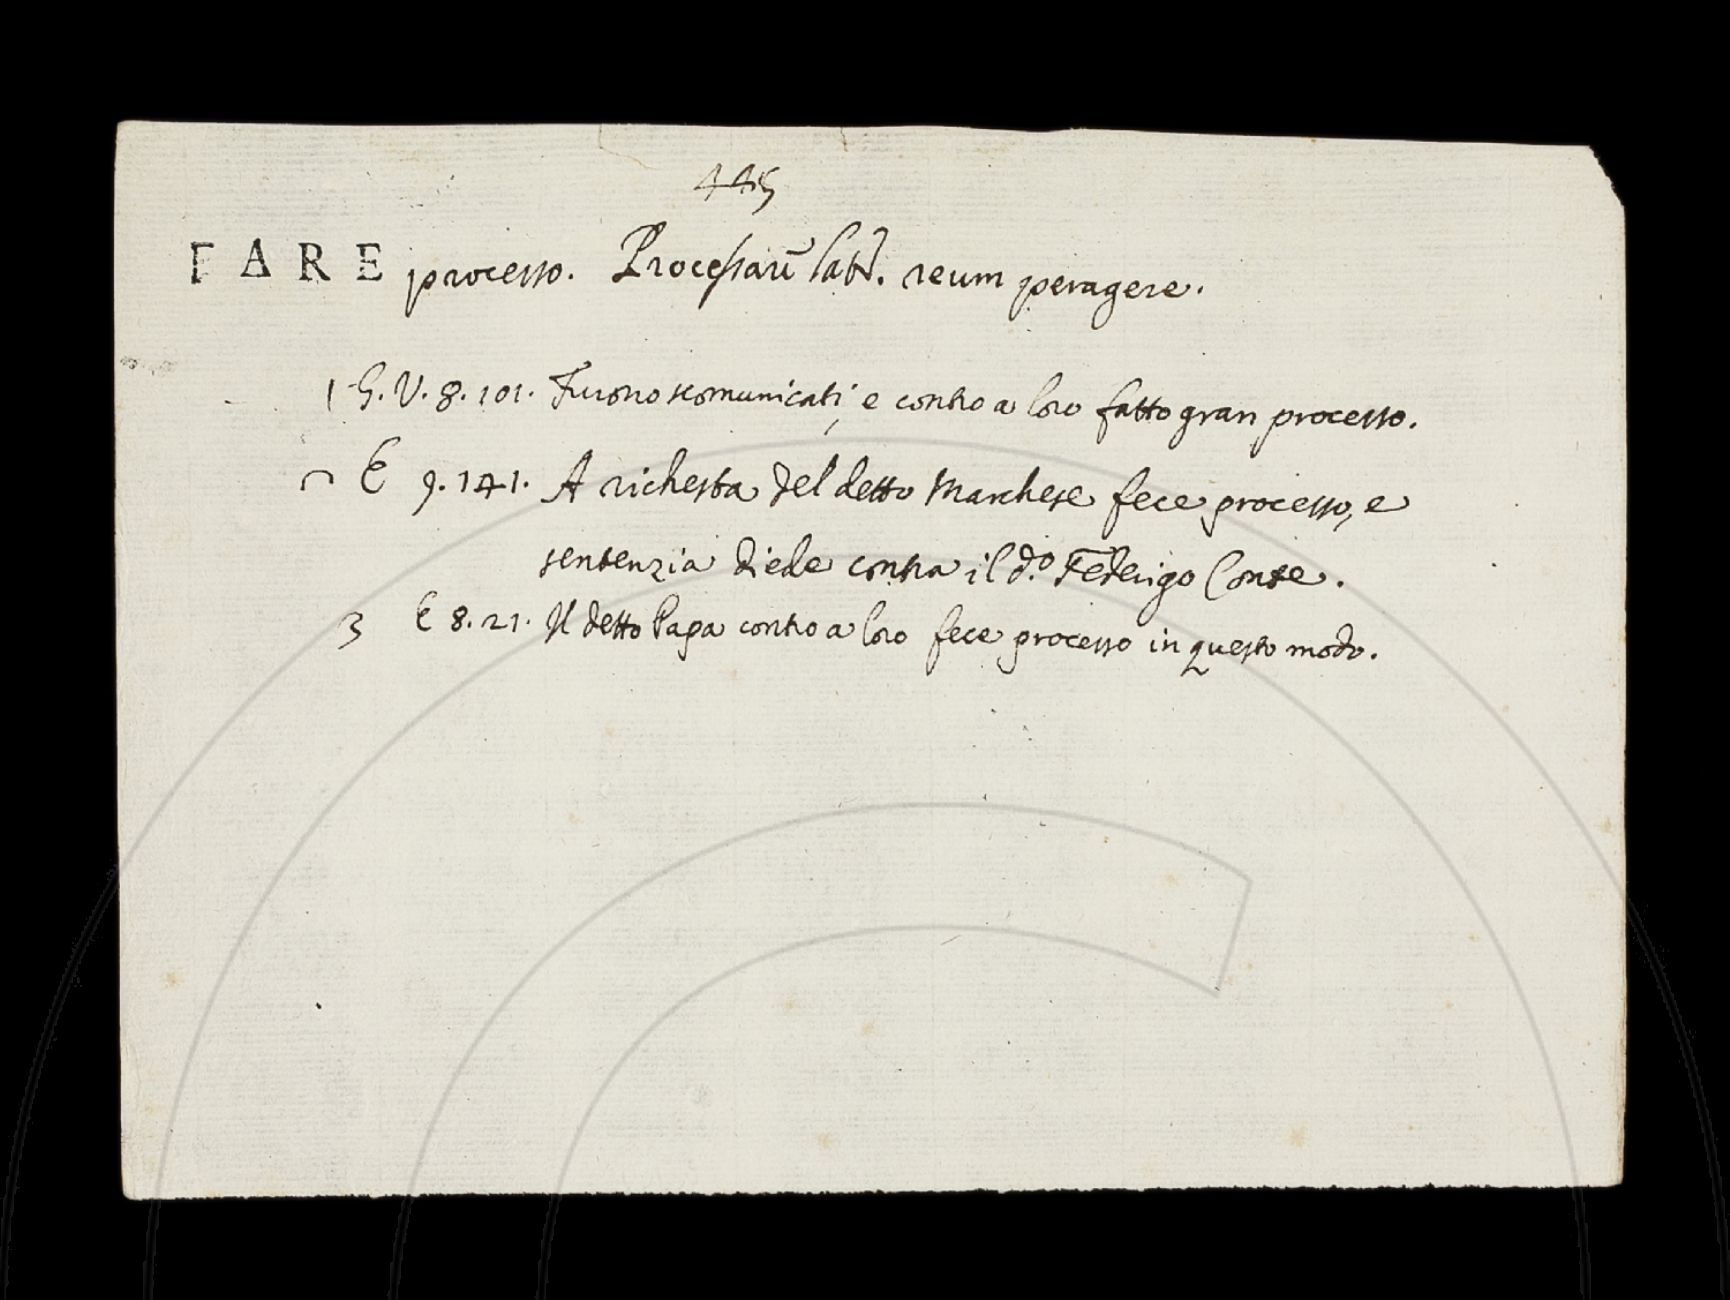 445
FARE processo. Processarũ lat. reum peragere.
1 G. V. 8. 101. Furono scomunicati, e contro a loro fatto gran processo.
2 E 9. 141. A richesta del detto Marchese fece processo, e
sentenzia diede contra il d.º Federigo Conte.
3 E 8. 21. Il detto Papa contro a loro fece processo in questo modo.